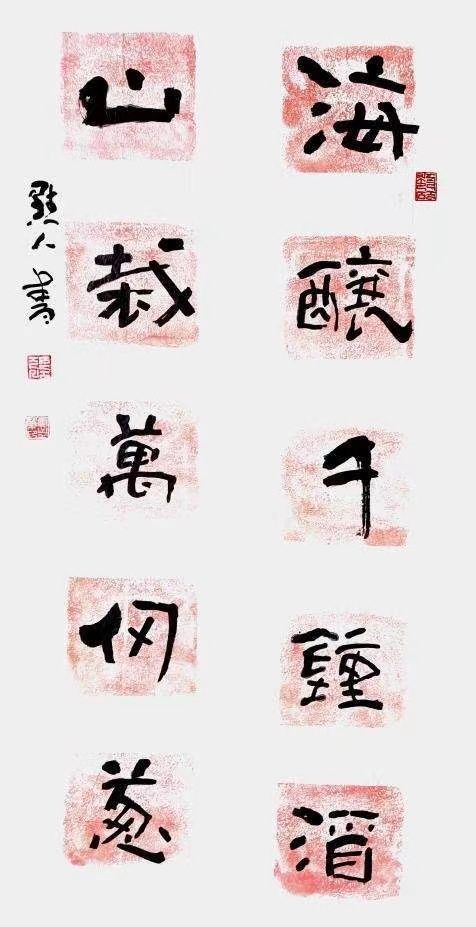 海釀千鍾酒
山栽萬仞葱
人書